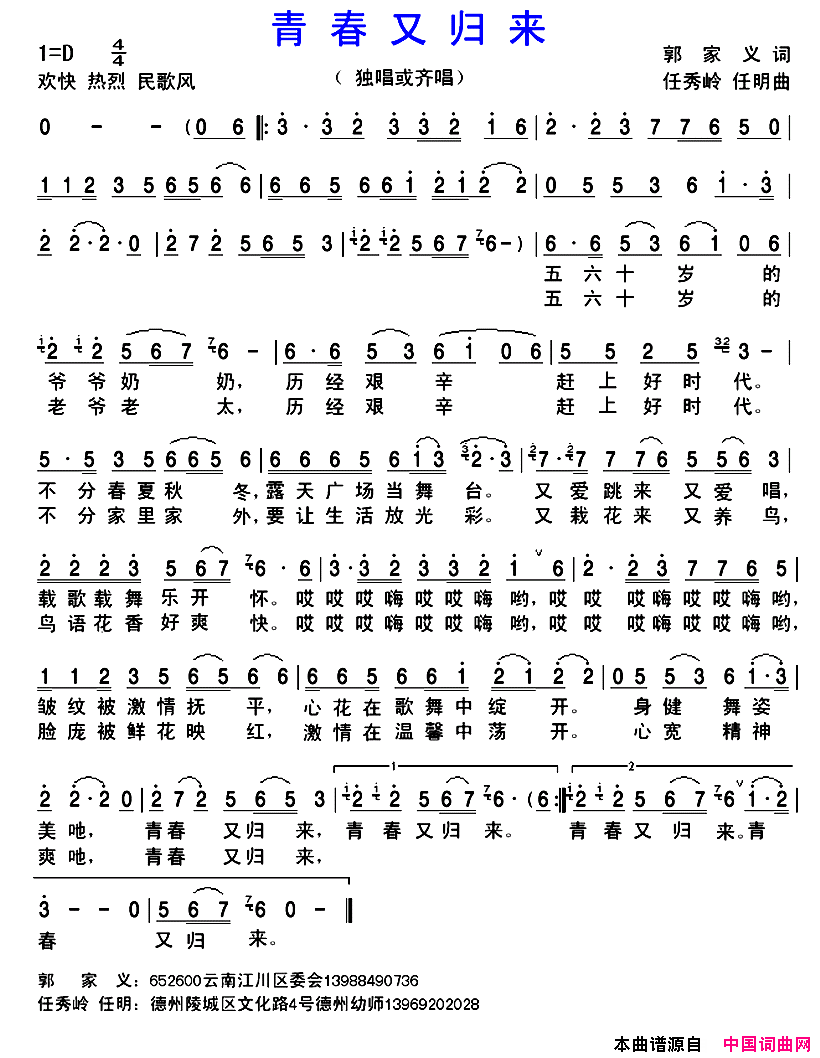 青春又归来
1=D 4/4 郭家义词
欢快 热烈 民歌风 （独唱或齐唱） 任秀岭 任明曲
0 - - (0 6 |: 3 · 3 2 3 3 2 1 6 | 2 · 2 3 7 7 6 5 0 |
1 1 2 3 5 6 5 6 6 | 6 6 5 6 6 1 2 1 2 2 | 0 5 5 3 6 1 · 3 |
2 2 · 2 · 0 | 2 7 2 5 6 5 3 | 2 2 5 6 7 6 - ) | 6 · 6 5 3 6 1 0 6 |
五六十岁的
五六十岁的
2 2 5 6 7 6 - | 6 · 6 5 3 6 1 0 6 | 5 5 2 5 3 - |
爷爷奶奶，历经艰辛 赶上好时代。
老爷老太，历经艰辛 赶上好时代。
5 · 5 3 5 6 6 5 6 | 6 6 6 5 6 1 3 2 · 3 | 7 · 7 7 7 6 5 6 3 |
不分春夏秋冬，露天广场当舞台。又爱跳来又爱唱，
不分家里家外，要让生活放光彩。又栽花来又养鸟，
2 2 2 3 5 6 7 6 · 6 | 3 · 3 2 3 3 2 1 6 | 2 · 2 3 7 7 6 5 |
载歌载舞乐开怀。哎哎嗨哎哎嗨哟，哎哎 哎嗨哎哎嗨哟，
鸟语花香好爽快。哎哎嗨哎哎嗨哟，哎哎 哎嗨哎哎嗨哟，
1 1 2 3 5 6 5 6 6 | 6 6 5 6 6 1 2 1 2 2 | 0 5 5 3 6 1 · 3 |
皱纹被激情抚平，心花在歌舞中绽开。身健舞姿
脸庞被鲜花映红，激情在温馨中荡开。心宽精神
1 2
2 2 · 2 0 | 2 7 2 5 6 5 3 | 2 2 5 6 7 6 · (6 :| 2 2 5 6 7 6 1 · 2 |
美吔，青春又归来，青春又归来。青春又归来。青
爽吔，青春又归来，
3 - - 0 | 5 6 7 6 0 - ‖
春 又归来。
郭家义：652600云南江川区委会13988490736
任秀岭 任明：德州陵城区文化路4号德州幼师13969202028
本曲谱源自 中国词曲网